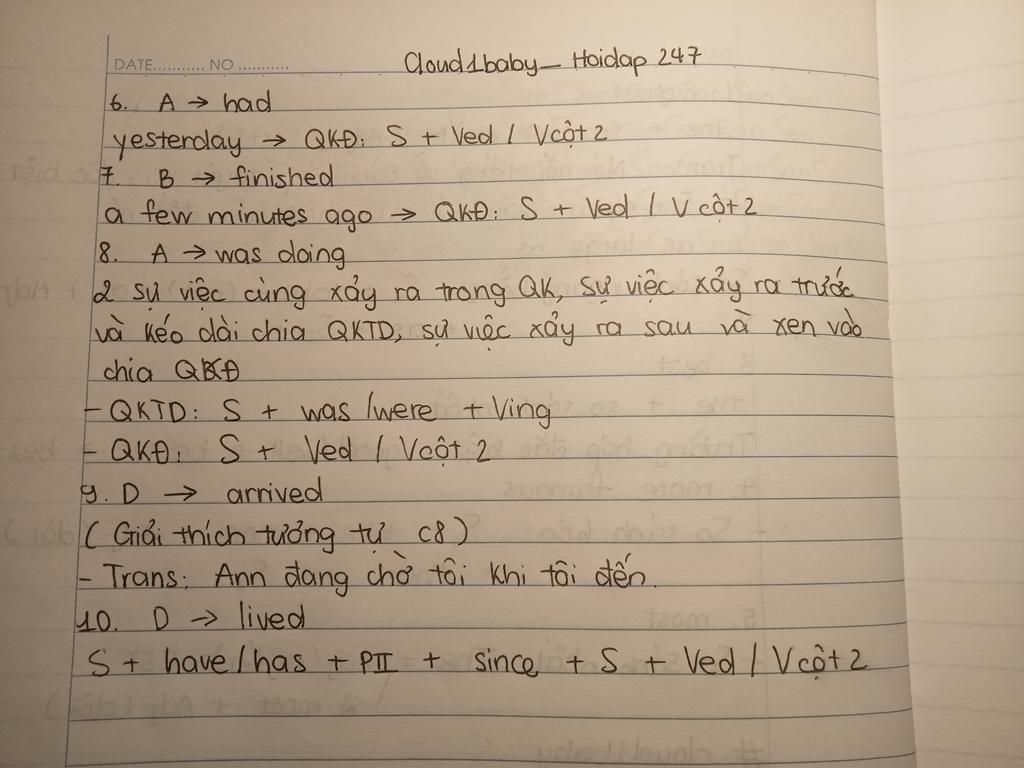 DATE........... NO ...........
Cloud1baby_ Hoidap 247
6. A → had
yesterday → QKĐ: S + Ved / Vcột 2
7. B → finished
a few minutes ago → QKĐ: S + Ved / V cột 2
8. A → was doing
2 sự việc cùng xảy ra trong QK, sự việc xảy ra trước
và kéo dài chia QKTD, sự việc xảy ra sau và xen vào
chia QKĐ
- QKTD: S + was /were + Ving
- QKĐ: S + Ved / Vcột 2
9. D → arrived
( Giải thích tưởng tự c8 )
- Trans: Ann đang chờ tôi khi tôi đến.
10. D → lived
S + have / has + PII + since + S + Ved / V cột 2